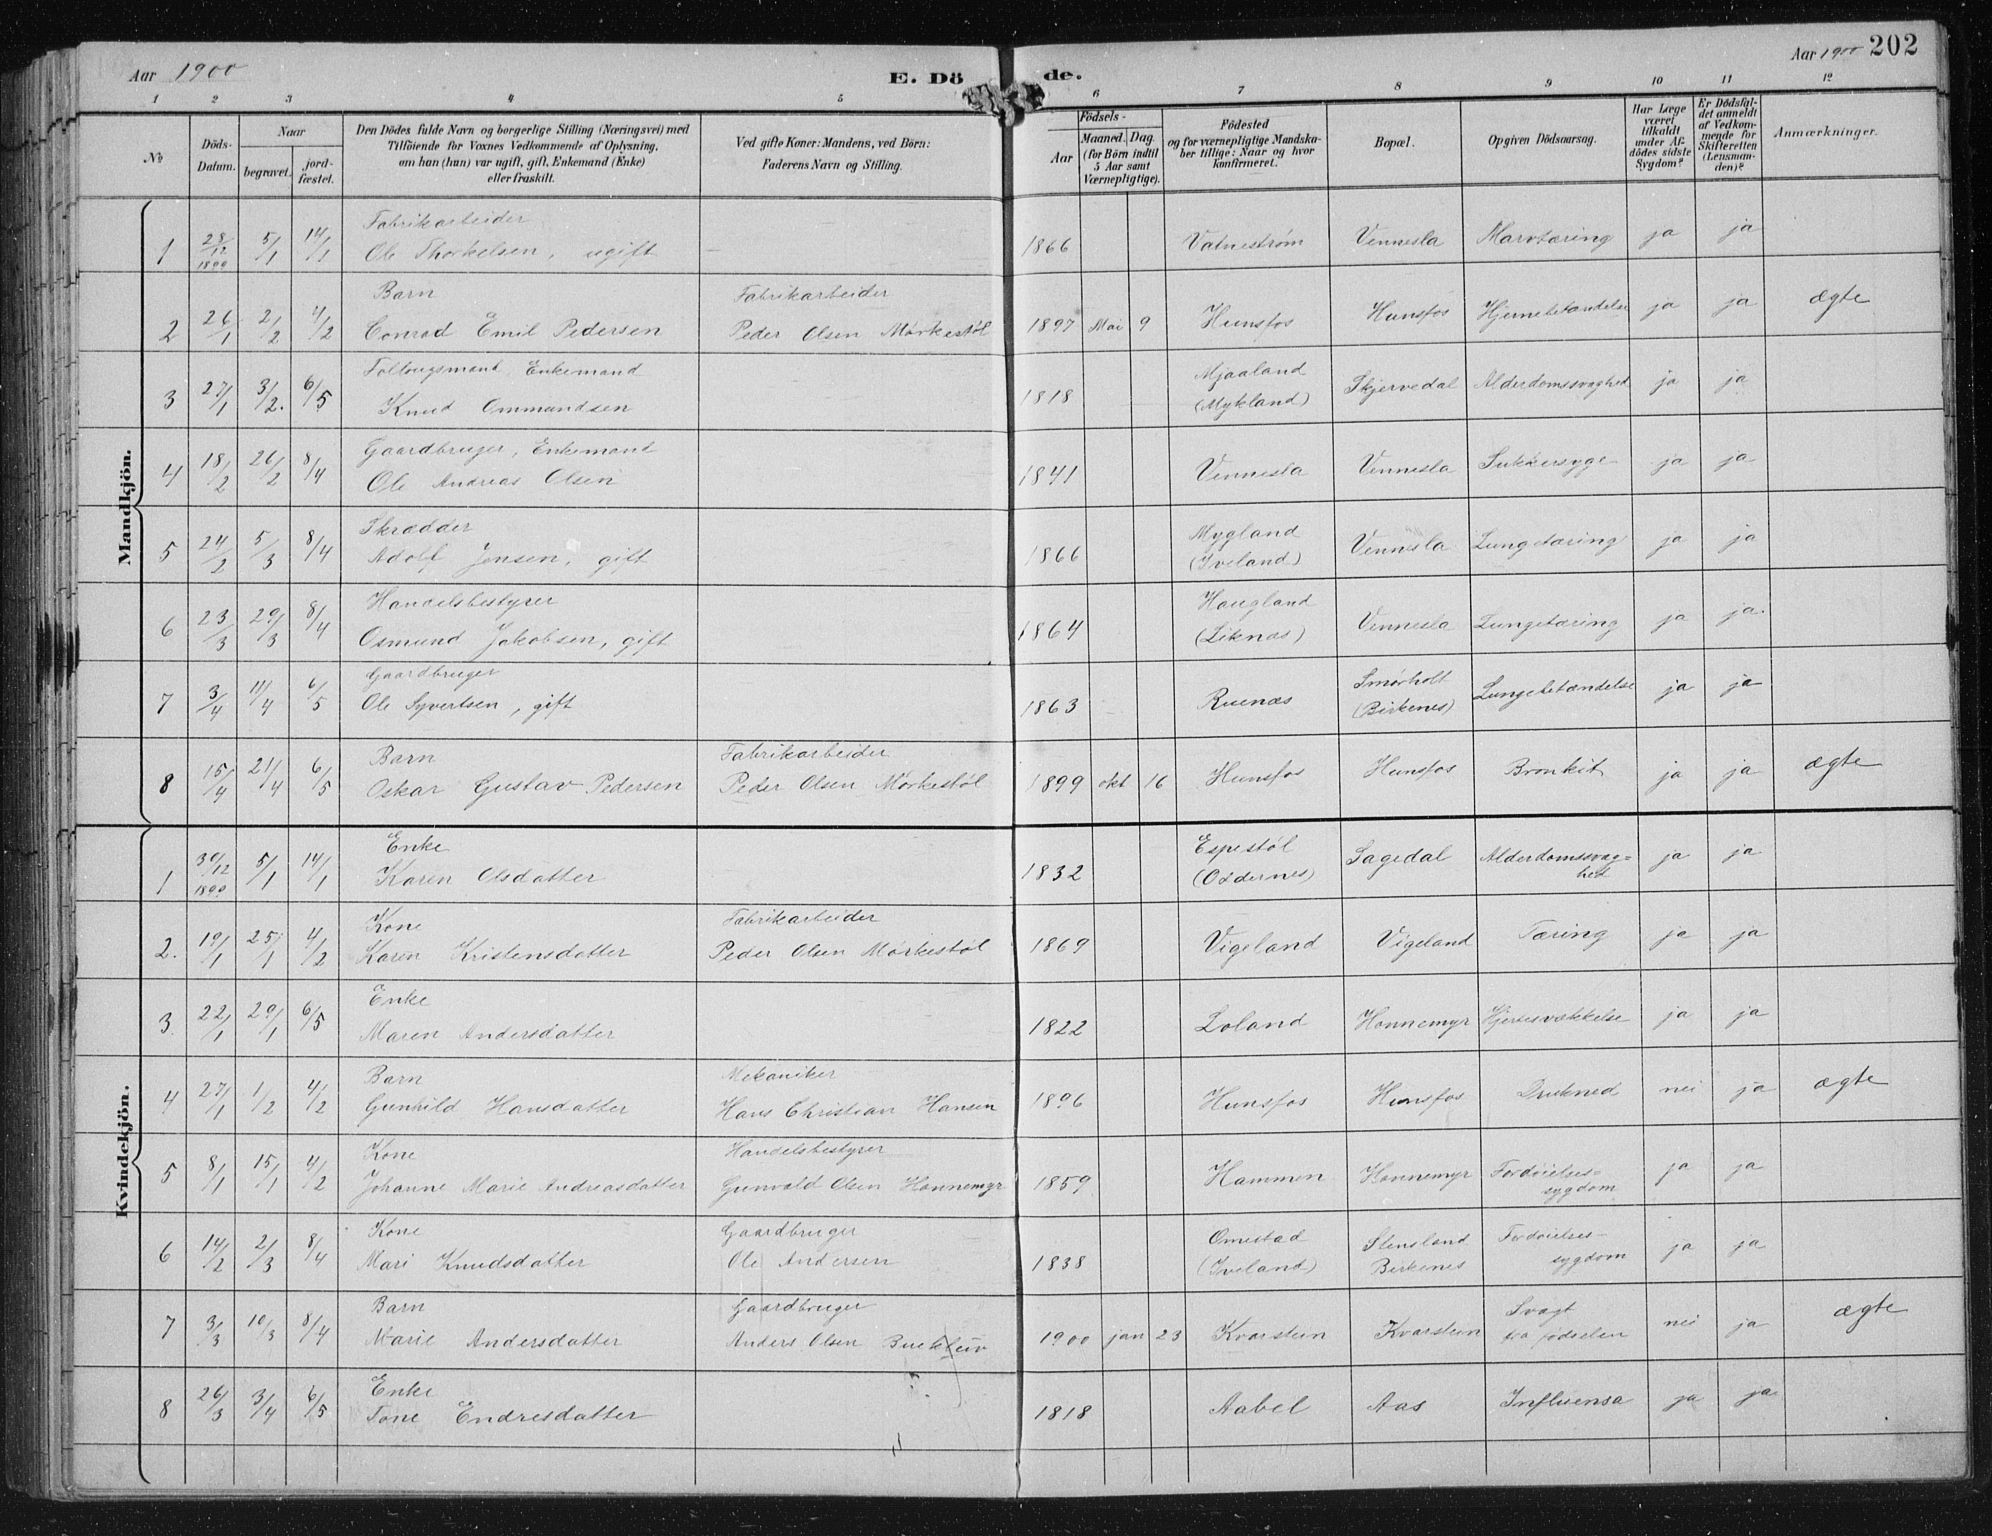 Aar 1900 E. Dö de. Aar 1900 202
1 2 3 4 5 6 7 8 9 10 11 12
No
Döds-Datum.
Naar
begravet.
jord-fæstet.
Den Dödes fulde Navn og borgerlige Stilling (Næringsvei) med
Tilföiende for Voxnes Vedkommende af Oplysning,
om han (hun) var ugift, gift, Enkemand (Enke)
eller fraskilt.
Ved gifte Koner: Mandens, ved Börn:
Faderens Navn og Stilling.
Födsels-
Aar
Maaned. Dag.
(for Börn indtil
5 Aar samt
Værnepligtige).
Födested
og for værnepligtige Mandska-
ber tillige: Naar og hvor
konfirmeret.
Bopæl.
Opgiven Dödsaarsag.
Har Læge
været
tilkaldt
under Af-
dödes sidste
Sygdom?
Er Dödsfal-
det anmeldt
af Vedkom-
mende for
Skifteretten
(Lensman-
den)?
Anmærkninger.
Mandkjön.
Fabrikarbeider
1 28/12 1899 5/1 14/1 Ole Thorkelsen, ugift – 1866 Vatneström Vennesla Marvtæring ja ja
Barn Fabrikarbeider
2 26/1 2/2 4/2 Conrad Emil Pedersen Peder Olsen Mørkestøl 1897 Mai 9 Hunsfos Hunsfos Hjernebetændelse ja ja ægte
Foltougsmand, Enkemand Mjaaland
3 27/1 3/2. 6/5 Knud Ommundsen 1818 (Mykland) Skjervedal Alderdomssvaghed ja ja
Gaardbruger, Enkemand
4 18/2 26/2 8/4 Ole Andreas Olsen 1841 Vennesla Vennesla Sukkersyge ja ja
Skrædder Mygland
5 24/2 5/3 8/4 Adolf Jensen, gift 1866 (Iveland) Vennesla Lungetæring ja ja
Handelsbestyrer Haugland
6 23/3 29/3 8/4 Osmund Jakobsen, gift 1864 (Liknæs) Vennesla Lungetæring ja ja.
Gaardbruger Smørholt
7 3/4 11/4 6/5 Ole Syvertsen, gift 1863 Ruenæs (Birkenes) Lungebetændelse ja ja
Barn Fabrikarbeider
8 15/4 21/4 6/5 Oskar Gustav Pedersen Peder Olsen Mørkestøl 1899 okt 16 Hunsfos Hunsfos Bronkit ja ja ægte
Kvindekjön.
Enke Espestøl
1 30/12 1899 5/1 14/1 Karen Olsdatter 1832 (Oddernes) Sagedal Alderdomssvag=
hed ja ja
Kone Fabrikarbeider
2. 19/1 25/1 4/2 Karen Kristensdatter Peder Olsen Mørkestøl 1869 Vigeland Vigeland Tæring ja ja
Enke
3 22/1 29/1 6/5 Maren Andersdatter 1822 Loland Honnemyr Hjertesvækkelse ja ja
Barn Mekaniker
4 27/1 1/2 4/2 Gunhild Hansdatter Hans Christian Hansen 1896 Hunsfos Hunsfos Drukned nei ja ægte
Kone Handelsbestyrer
5 8/1 15/1 4/2 Johanne Marie Andreasdatter Gunvald Olsen Honnemyr 1859 Hammen Honnemyr Fordøielses=
sygdom ja ja
Kone Gaardbruger Omestad Stensland Fordøielses-
6 14/2 2/3 8/4 Mari Knudsdatter Ole Andersen 1838 (Iveland) Birkenes sygdom ja ja
Barn Gaardbruger Svagt
7 3/3 10/3 8/4 Marie Andersdatter Anders Olsen 1900 jan 23 Kvarstein Kvarstein fra fødselen nei ja ægte
Enke
8 26/3 3/4 6/5 Tone Endresdatter 1818 Aabel Aas Influensa ja ja